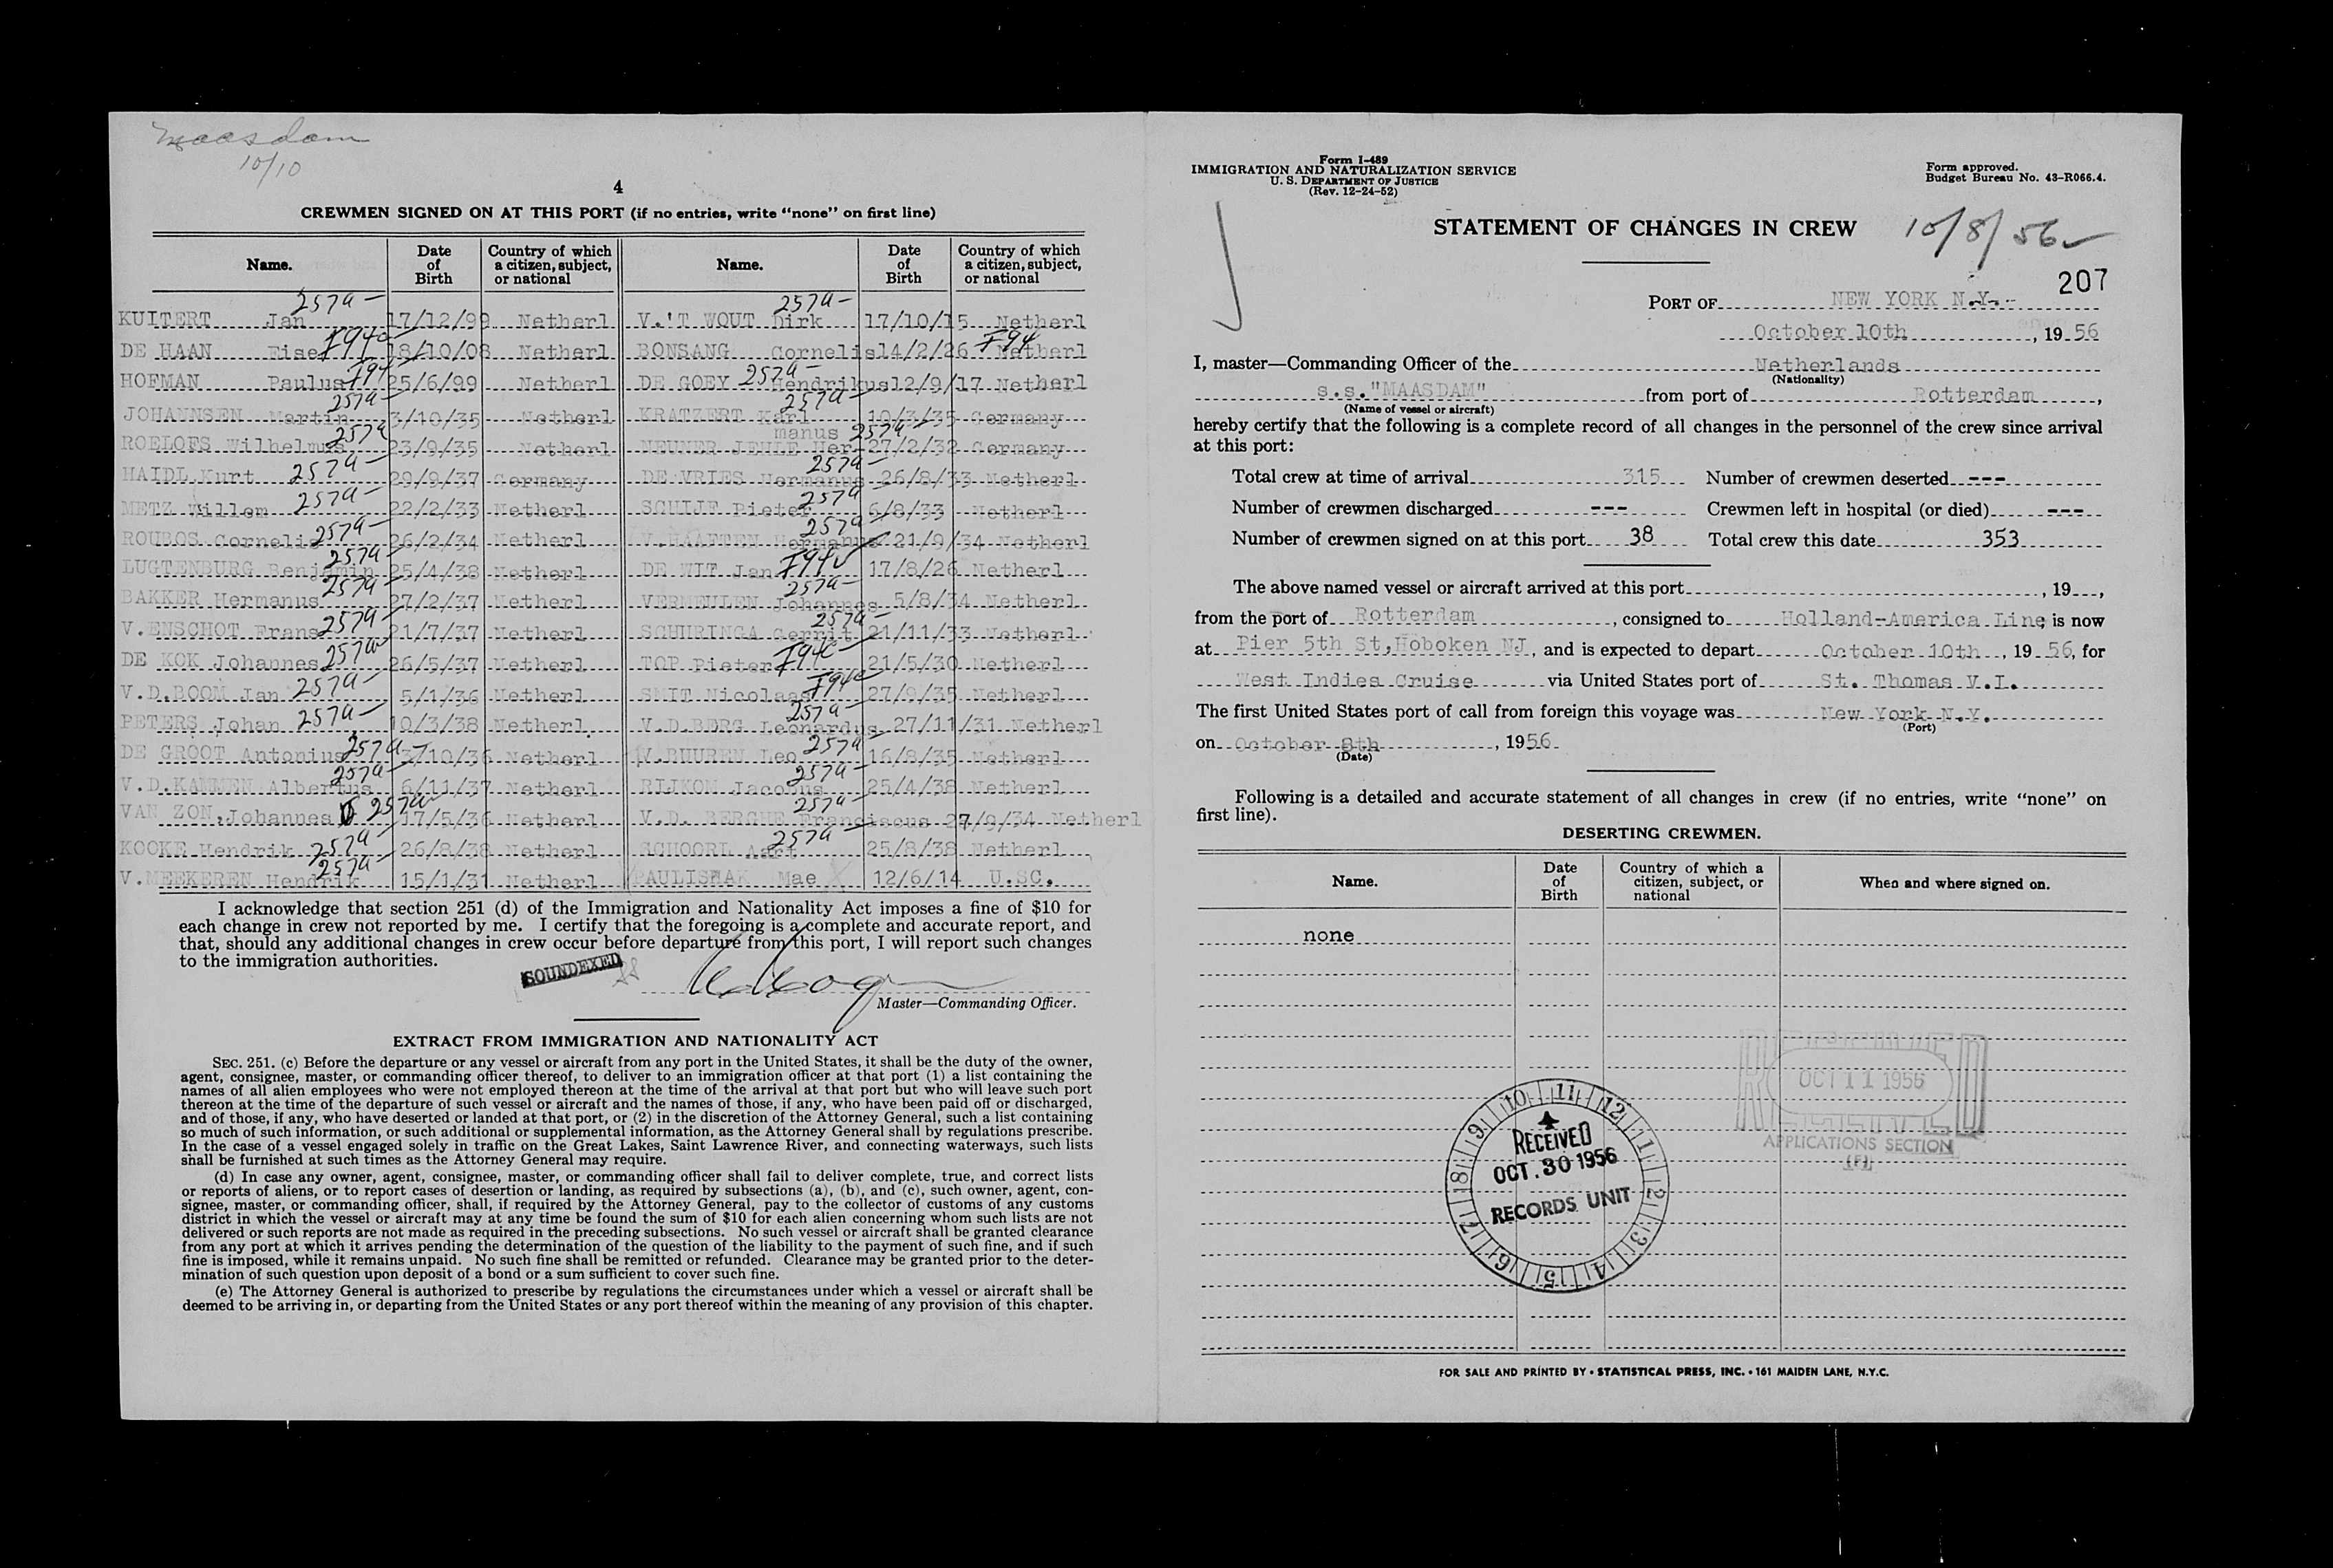 Maasdam
10/10
4
CREWMEN SIGNED ON AT THIS PORT (if no entries, write “none” on first line)
Name. Date of Birth Country of which a citizen, subject, or national Name. Date of Birth Country of which a citizen, subject, or national
KUITERT Jan 257a 17/12/99 Netherl V.'T WOUT Dirk 257a 17/10/15 Netherl
DE HAAN Eise 18/10/08 Netherl BONSANG Cornelis 14/2/26 Netherl F94
HOFMAN Paulus 25/6/99 Netherl DE GOEY Hendrikus 257a 12/9/17 Netherl
JOHANNSEN Martin 257a 3/10/35 Netherl KRATZERT Karl 257a 10/3/35 Germany
ROELOFS Wilhelmus 257a 23/9/35 Netherl NEUNER JEHLE Hermanus 257a 27/2/32 Germany
HAIDL Kurt 257a 29/9/37 Germany DE VRIES Hermanus 257a 26/8/33 Netherl
METZ Willem 257a 22/2/33 Netherl SCHIJF Pieter 257a 6/8/33 Netherl
ROUBOS Cornelis 257a 26/2/34 Netherl V.HAAFTEN Hermanus 257a 21/9/34 Netherl
LUGTENBURG Benjamin 257a 25/4/38 Netherl DE WIT Jan 17/8/26 Netherl
BAKKER Hermanus 257a 27/2/37 Netherl VERMEULEN Johannes 257a 5/8/34 Netherl
V.ENSCHOT Frans 257a 21/7/37 Netherl SCHURINGA Gerrit 257a 21/11/33 Netherl
DE KOK Johannes 257a 26/5/37 Netherl TOP Pieter 21/5/30 Netherl
V.D.BOOM Jan 257a 5/1/36 Netherl SMIT Nicolaas 27/9/35 Netherl
PETERS Johan 257a 10/3/38 Netherl V.D.BERG Leonardus 257a 27/11/31 Netherl
DE GROOT Antonius 257a /10/36 Netherl V.BUUREN Leo 257a 16/8/35 Netherl
V.D.KAMMEN Albertus 257a 6/11/37 Netherl RIJKOM Jacobus 257a 25/4/38 Netherl
VAN ZON, Johannes 257a 17/5/36 Netherl V.D. BERGHE Franciscus 257a 27/9/34 Netherl
KOOKE Hendrik 257a 26/8/38 Netherl SCHOORL Aart 257a 25/8/38 Netherl
V.MEEKEREN Hendrik 257a 15/1/31 Netherl PAULISHAK Mae 12/6/14 U.SC.
I acknowledge that section 251 (d) of the Immigration and Nationality Act imposes a fine of $10 for
each change in crew not reported by me. I certify that the foregoing is a complete and accurate report, and
that, should any additional changes in crew occur before departure from this port, I will report such changes
to the immigration authorities.
SOUNDEXED
Master—Commanding Officer.
EXTRACT FROM IMMIGRATION AND NATIONALITY ACT
SEC. 251. (c) Before the departure or any vessel or aircraft from any port in the United States, it shall be the duty of the owner,
agent, consignee, master, or commanding officer thereof, to deliver to an immigration officer at that port (1) a list containing the
names of all alien employees who were not employed thereon at the time of the arrival at that port but who will leave such port
thereon at the time of the departure of such vessel or aircraft and the names of those, if any, who have been paid off or discharged,
and of those, if any, who have deserted or landed at that port, or (2) in the discretion of the Attorney General, such a list containing
so much of such information, or such additional or supplemental information, as the Attorney General shall by regulations prescribe.
In the case of a vessel engaged solely in traffic on the Great Lakes, Saint Lawrence River, and connecting waterways, such lists
shall be furnished at such times as the Attorney General may require.
(d) In case any owner, agent, consignee, master, or commanding officer shall fail to deliver complete, true, and correct lists
or reports of aliens, or to report cases of desertion or landing, as required by subsections (a), (b), and (c), such owner, agent, con-
signee, master, or commanding officer, shall, if required by the Attorney General, pay to the collector of customs of any customs
district in which the vessel or aircraft may at any time be found the sum of $10 for each alien concerning whom such lists are not
delivered or such reports are not made as required in the preceding subsections. No such vessel or aircraft shall be granted clearance
from any port at which it arrives pending the determination of the question of the liability to the payment of such fine, and if such
fine is imposed, while it remains unpaid. No such fine shall be remitted or refunded. Clearance may be granted prior to the deter-
mination of such question upon deposit of a bond or a sum sufficient to cover such fine.
(e) The Attorney General is authorized to prescribe by regulations the circumstances under which a vessel or aircraft shall be
deemed to be arriving in, or departing from the United States or any port thereof within the meaning of any provision of this chapter.
Form I-489
IMMIGRATION AND NATURALIZATION SERVICE
U. S. DEPARTMENT OF JUSTICE
(Rev. 12-24-52)
Form approved.
Budget Bureau No. 43-R066.4.
STATEMENT OF CHANGES IN CREW
10/8/56
207
PORT OF NEW YORK N.Y.
October 10th, 19 56
I, master—Commanding Officer of the Netherlands
(Nationality)
s.s."MAASDAM" from port of Rotterdam,
(Name of vessel or aircraft)
hereby certify that the following is a complete record of all changes in the personnel of the crew since arrival
at this port:
Total crew at time of arrival 315 Number of crewmen deserted ---
Number of crewmen discharged --- Crewmen left in hospital (or died) ---
Number of crewmen signed on at this port 38 Total crew this date 353
The above named vessel or aircraft arrived at this port , 19 ,
from the port of Rotterdam, consigned to Holland-America Line is now
at Pier 5th St,Hoboken NJ, and is expected to depart October 10th, 19 56, for
West Indies Cruise via United States port of St. Thomas V.I.
The first United States port of call from foreign this voyage was New York N.Y.
(Port)
on October 8th, 1956
(Date)
Following is a detailed and accurate statement of all changes in crew (if no entries, write “none” on
first line).
DESERTING CREWMEN.
Name. Date of Birth Country of which a citizen, subject, or national When and where signed on.
none
RECEIVED
OCT 11 1956
APPLICATIONS SECTION
10 11 12 1 2 3 4 5 6 7 8 9
RECEIVED
OCT. 30 1956
RECORDS UNIT
FOR SALE AND PRINTED BY • STATISTICAL PRESS, INC. • 161 MAIDEN LANE, N.Y.C.